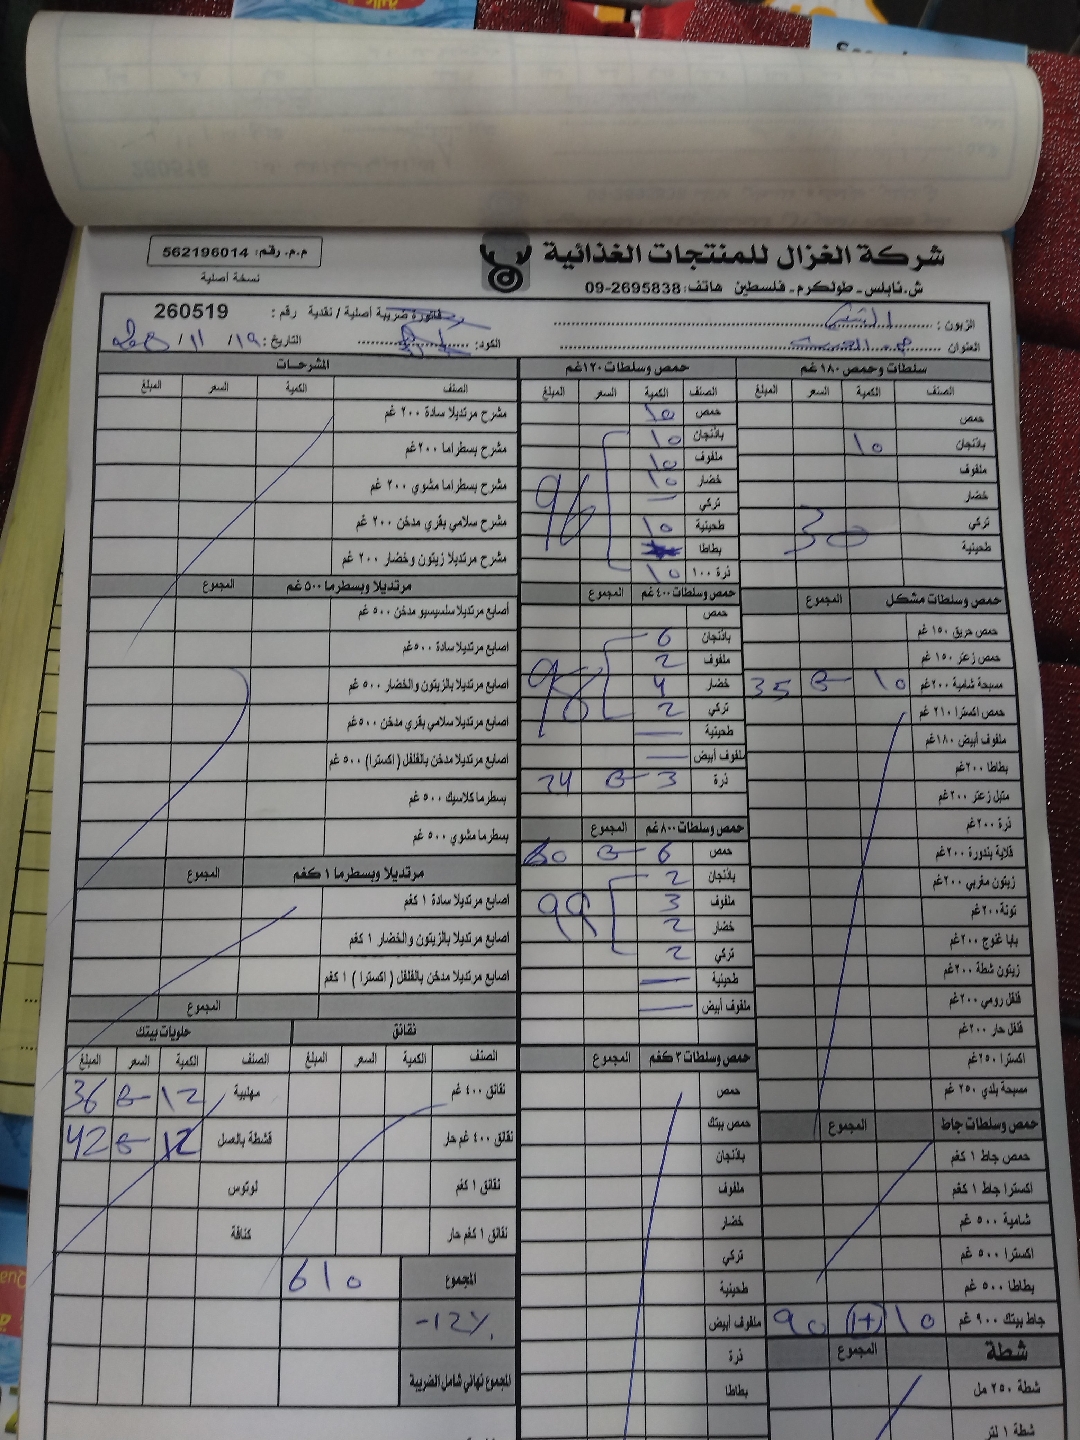 شركة الغزال للمنتجات الغذائية
ش.نابلس - طولكرم - فلسطين هاتف: 09-2695838
م.م. رقم: 562196014
نسخة أصلية
فاتورة ضريبية أصلية / نقدية رقم : 260519
الزبون :
العنوان
الكود:
التاريخ: ١٩/ ١١/
سلطات وحمص ١٨٠ غم
الصنف الكمية السعر المبلغ
حمص
باذنجان ١٥
ملفوف
خضار
تركي
طحينية
30
حمص وسلطات مشكل المجموع
حمص حريق ١٥٠ غم
حمص زعتر ١٥٠ غم
مسبحة شامية ٢٠٠غم ١٥ 35
حمص اكسترا ٢١٠ غم
ملفوف أبيض ١٨٠غم
بطاطا ٢٠٠غم
متبل زعتر ٢٠٠غم
ذرة ٢٠٠غم
قلاية بندورة ٢٠٠غم
زيتون مغربي ٢٠٠غم
تونة ٢٠٠غم
بابا غنوج ٢٠٠غم
زيتون شطة ٢٠٠غم
فلفل رومي ٢٠٠غم
فلفل حار ٢٠٠غم
اكسترا ٢٥٠غم
مسبحة بلدي ٢٥٠ غم
حمص وسلطات جاط المجموع
حمص جاط ١ كغم
اكسترا جاط ١ كغم
شامية ٥٠٠ غم
اكسترا ٥٠٠ غم
بطاطا ٥٠٠ غم
جاط بيتك ٩٠٠ غم 10 1+ 90
شطة المجموع
شطة ٢٥٠ مل
شطة ١ لتر
حمص وسلطات ١٢٠غم
الصنف الكمية السعر المبلغ
حمص 10
باذنجان 10
ملفوف 10
خضار 10
تركي —
طحينية 10
بطاطا
ذرة ١٠٠ 10
96
حمص وسلطات ٤٠٠غم المجموع
حمص
باذنجان 6
ملفوف 2
خضار 4
تركي 2
98
طحينية —
ملفوف أبيض —
ذرة 3 8 24
حمص وسلطات ٨٠٠غم المجموع
حمص 6
باذنجان 2
ملفوف 3
خضار 2
تركي 2
99
طحينية —
ملفوف أبيض —
حمص وسلطات ٣ كغم المجموع
حمص
حمص بيتك
باذنجان
ملفوف
خضار
تركي
طحينية
ملفوف أبيض
ذرة
بطاطا
المشرحات
الصنف الكمية السعر المبلغ
مشرح مرتديلا سادة ٢٠٠ غم
مشرح بسطراما ٢٠٠غم
مشرح بسطراما مشوي ٢٠٠ غم
مشرح سلامي بقري مدخن ٢٠٠ غم
مشرح مرتديلا زيتون وخضار ٢٠٠ غم
مرتديلا وبسطرما ٥٠٠ غم المجموع
أصابع مرتديلا سلسيسيو مدخن ٥٠٠ غم
اصابع مرتديلا سادة ٥٠٠غم
اصابع مرتديلا بالزيتون والخضار ٥٠٠ غم
أصابع مرتديلا سلامي بقري مدخن ٥٠٠غم
اصابع مرتديلا مدخن بالفلفل (اكسترا) ٥٠٠ غم
بسطرما كلاسيك ٥٠٠ غم
بسطرما مشوي ٥٠٠ غم
مرتديلا وبسطرما ١ كغم المجموع
اصابع مرتديلا سادة ١ كغم
اصابع مرتديلا بالزيتون والخضار ١ كغم
اصابع مرتديلا مدخن بالفلفل (اكسترا) ١ كغم
المجموع
نقانق
الصنف الكمية السعر المبلغ
نقانق ٤٠٠ غم
نقانق ٤٠٠ غم حار
نقانق ١ كغم
نقانق ١ كغم حار
حلويات بيتك
الصنف الكمية السعر المبلغ
مهلبية 12 36
قشطة بالعسل 12 42
لوتوس
كنافة
المجموع 610
-12%
المجموع نهائي شامل الضريبة